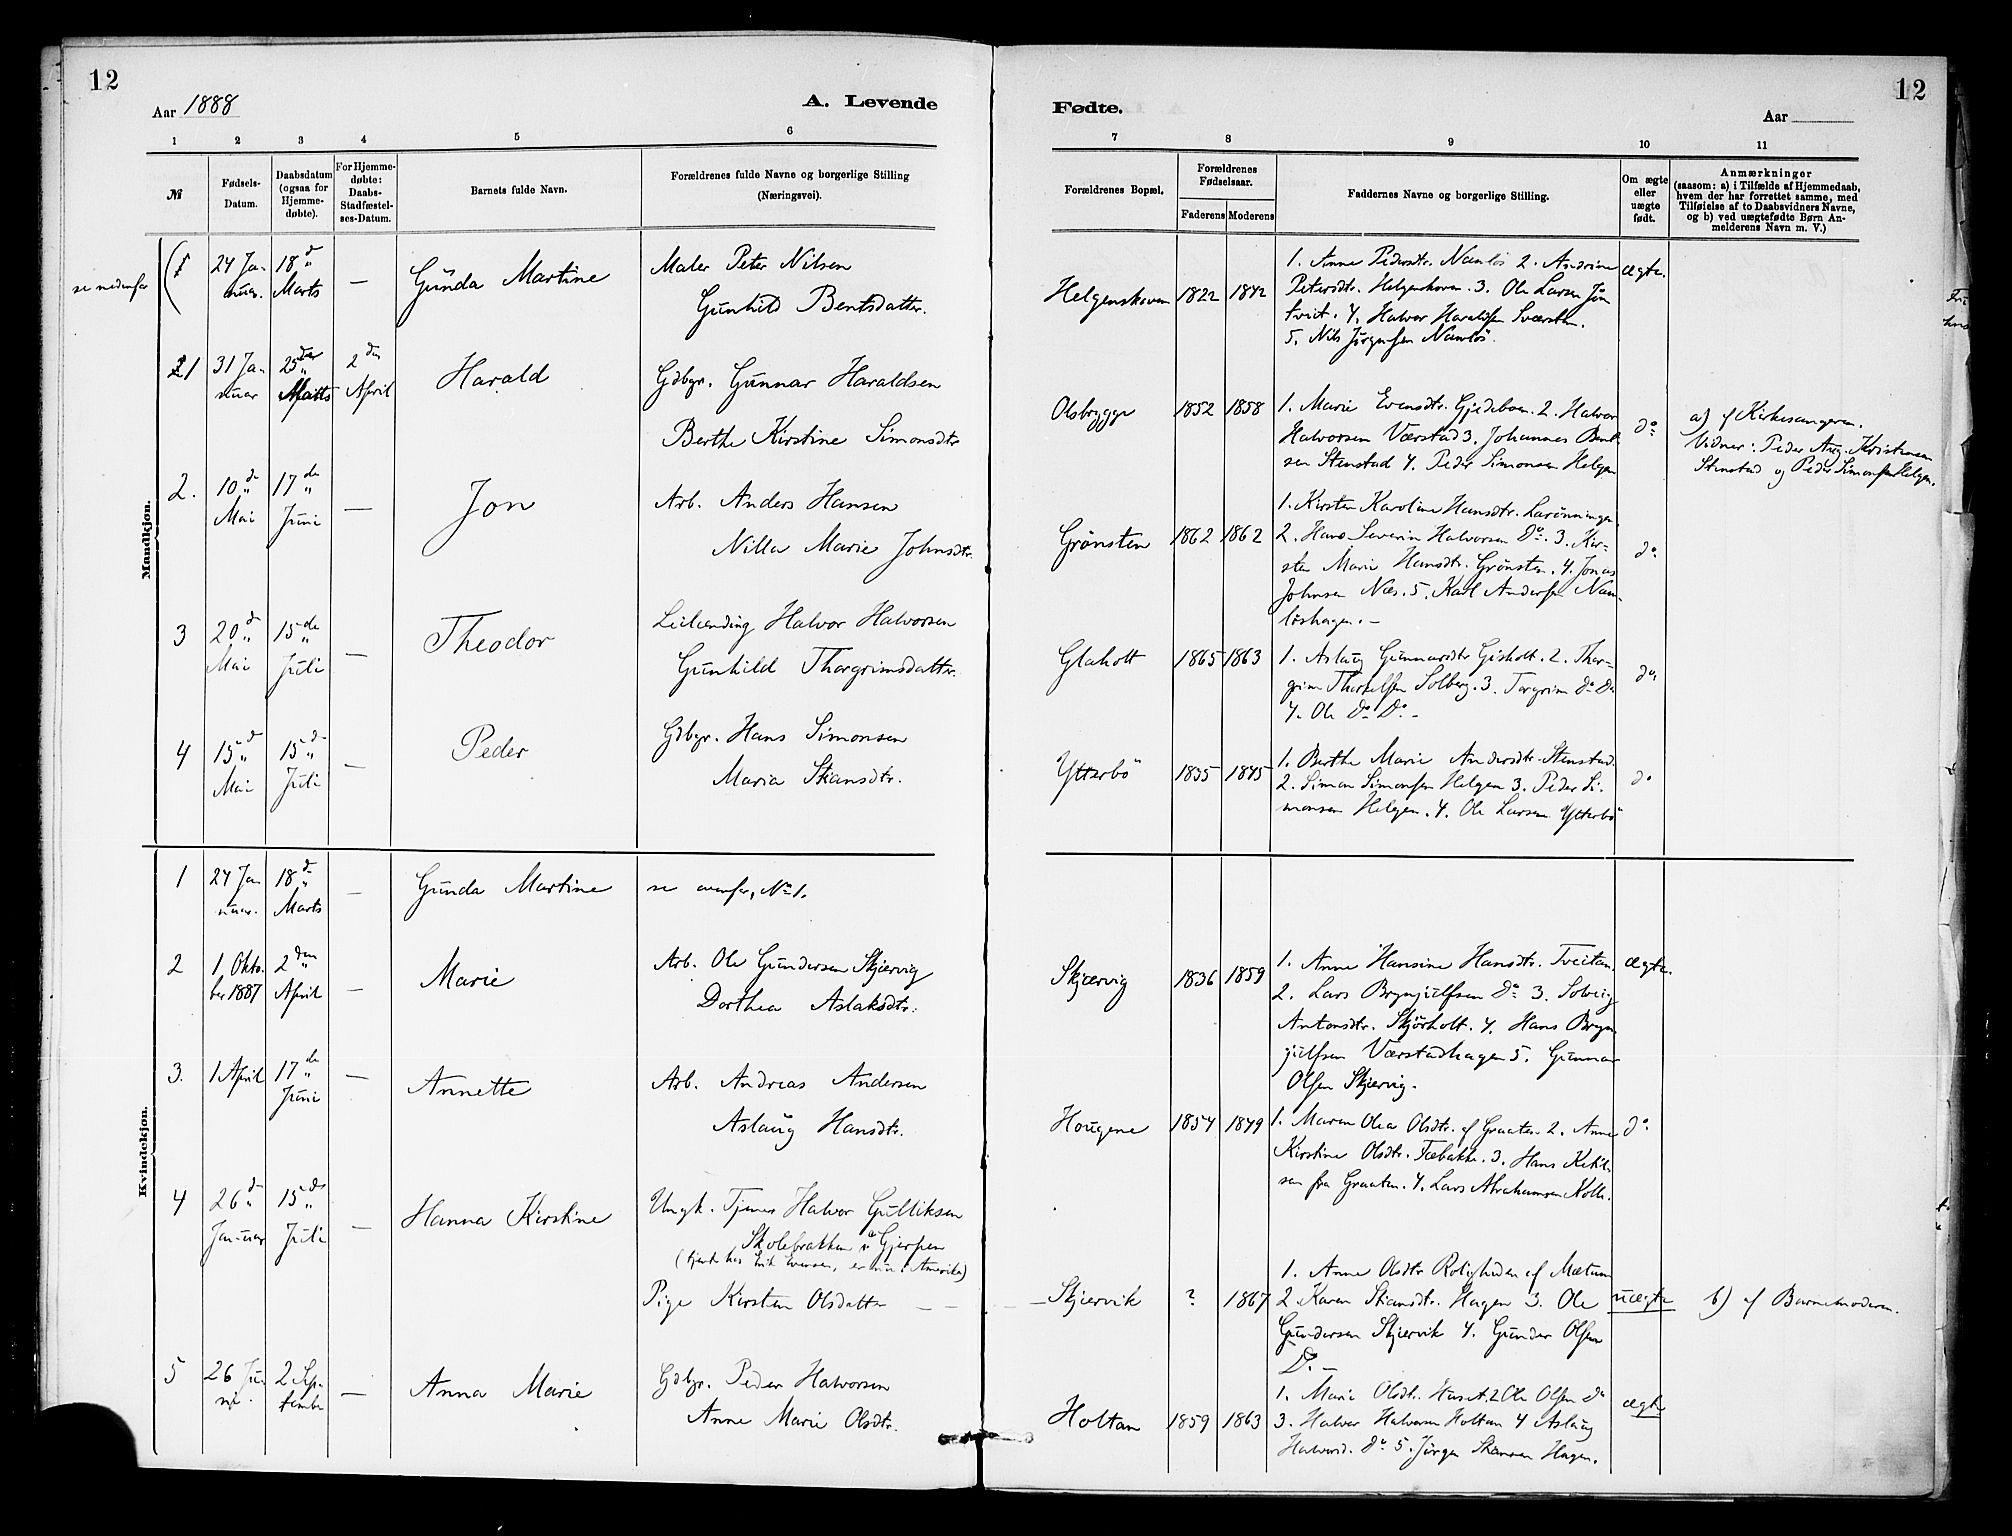 12
12
Aar 1888
A. Levende
Fødte.
Aar
1 2 3 4 5 6 7 8 9 10 11
№
Fødsels-
Datum.
Daabsdatum
(ogsaa for
Hjemme-
døbte).
For Hjemme-
døbte:
Daabs-
Stadfæstel-
ses-Datum.
Barnets fulde Navn.
Forældrenes fulde Navne og borgerlige Stilling
(Næringsvei).
Forældrenes Bopæl.
Forældrenes
Fødselsaar.
Faderens
Moderens
Faddernes Navne og borgerlige Stilling.
Om ægte
eller
uægte
født.
Anmærkninger
(saasom: a) i Tilfælde af Hjemmedaab,
hvem der har forrettet samme, med
Tilføielse af to Daabsvidners Navne,
og b) ved uægtefødte Børn An-
melderens Navn m. V.)
Mandkjøn.
se nedenfor
(1
24 Ja-
nuar.
18 d
Marts
—
Gunda Martine
Maler Peter Nilsen
Gunhild Bentsdatter.
Helgenskoven
1822
1842
1. Anne Pedersdtr. Nanløs 2. Andrine
Petersdtr. Helgenskoven. 3. Ole Larsen Jøn
tveit. 4. Halvor Haraldsen Sværsten.
5. Nils Jørgensen Nanløs.
ægte.
1
31 Ja-
nuar
25 der
Marts
2 den
April
Harald
Gdbgr. Gunnar Haraldsen
Berthe Kirstine Simonsdtr
Olsbrygge
1852
1858
1. Marie Evensdtr. Gjedeboen. 2. Halvor
Halvorsen Værstad 3. Johannes Bent
sen Stenstad 4. Peder Simonsen Helgen
do
a) af Kirkesangeren.
Vidner: Peder Aug. Kristensen
Stenstad og Peder Simonsen Helgen.
2.
10 d
Mai
17 de
Juni
—
Jon
Arb. Anders Hansen
Nilla Marie Johnsdtr.
Grønsten
1862
1862
1. Kirsten Karoline Hansdtr. Larønningen
2. Hans Severin Halvorsen Do. 3. Kir-
sten Marie Hansdtr. Grønsten. 4. Jonas
Johnsen Næs. 5. Karl Andersen Nan-
løshagen. —
do
3
20 d
Mai
15 de
Juli
—
Theodor
Leilending Halvor Halvorsen
Gunhild Thorgrimsdatter.
Glaholt
1865
1863
1. Aslaug Gunnarsdtr Gisholt. 2. Thor-
grim Thorkelsen Solberg. 3. Torgrim do do
4. Ole Do Do. —
do,
4
15 d
Mai
15 d
Juli
—
Peder
Gdbgr. Hans Simonsen
Maria Skansdtr.
Ytterbö
1835
1845
1. Berthe Marie Andersdtr Stenstad.
2. Simon Simonsen Helgen 3. Peder Si-
monsen Helgen. 4. Ole Larsen Ytterbö
do
Kvindekjøn.
1
24 Ja
nuar.
18 d
Marts
—
Gunda Martine
se ovenfor, No 1.
2
1 Okto
ber 1887
2 den
April
—
Marie
Arb. Ole Gundersen Skjærvig
Dorthea Aslaksdtr.
Skjærvig
1836
1859
1. Anne Hansine Hansdtr. Tveitan.
2. Lars Brynjulfsen do 3. Solveig
Antonsdtr. Skjørholt. 4. Hans Bryn
julfsen Værstadhagen 5. Gunnar
Olsen Skjærvig.
ægte.
3.
1 April
17 de
Juni
—
Annette
Arb. Andreas Andersen
Aslaug Hansdtr.
Hougene
1854
1849
1. Maren Olea Olsdtr. af Graaten. 2. Anne
Kirstine Olsdtr. Fæbakke. 3. Hans Ketil-
sen fra Graaten. 4. Lars Abrahamsen Kolle.
do
4
26 d
Januar
15 de
Juli
—
Hanna Kirstine
Ungk. Tjener Halvor Gulliksen
Skolebrakken i Gjerpen
(tjente hos Erik Evensen, er nu i Amerika)
Pige Kirsten Olsdatter — — —
Skjærvik
?
1867
1. Anne Olsdtr Roligheden af Mælum
2 Karen Skansdtr. Hagen 3. Ole
Gundersen Skjærvik 4. Gunder Olsen
D. —
uægte
b) af Barnemoderen.
5
26 Ju-
ni.
2 Sep-
tember
—
Anna Marie
Gdbgr. Peder Halvorsen
Anne Marie Olsdtr.
Holtan
1859
1863
1. Marie Olsdtr. Huset. 2 Ole Olsen do
3. Halvor Halvorsen Holtan 4 Aslaug
Halvorsd. do 5. Jørgen Skansen Hagen.
ægte